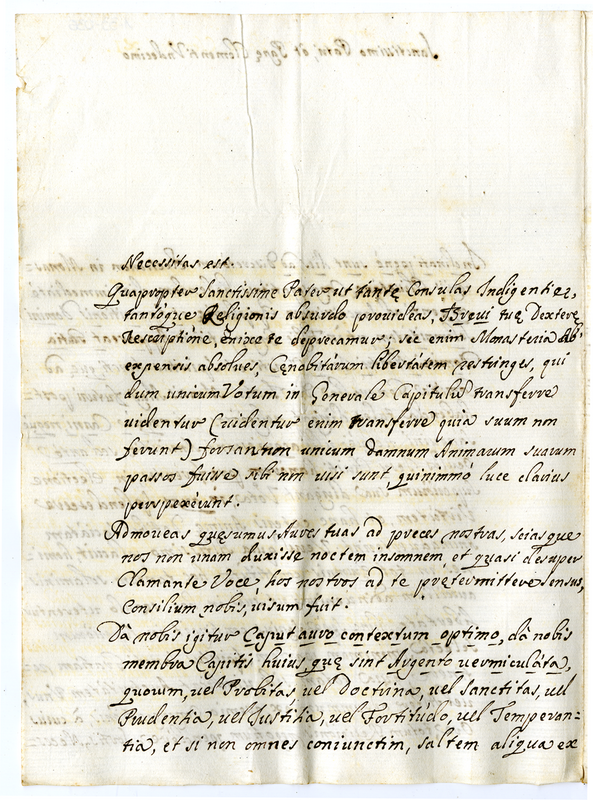 Necessitas est.
Quapropter Sanctissime Pater ut tantę Consulas Indigentię,
tantoque Religionis absurdo provideas, Brevi tuę Dexterę
Rescriptione, enixe te deprecamur; sic enim Monasteria Ab
expensis absolves, Cęnobitarum libertatem restringes, qui
dum unicum Votum in Generale Capitulum transferre
videntur (videntur enim transferre quia suum non
ferunt) forsan non unicum damnum Animarum suarum
passos fuisse sibi non visi sunt, quinimmó luce clarius
perspexerunt.
Admoveas quęsumus Aures tuas ad preces nostras, sciasque
nos non unam duxisse noctem insomnem, et quasi desuper
Clamante Voce, hos nostros ad te prętermittere sensus,
Consilium nobis, visum fuit.
Dà nobis igitur Caput auro contextum optimo, dà nobis
membra Capitis huius quę sint Argento vermiculata,
quorum, vel Probitas, vel Doctrina, vel Sanctitas, vel
Prudentia, vel Justitia, vel Fortitudo, vel Temperan=
tia, et si non omnes coniunctim, saltem aliqua ex